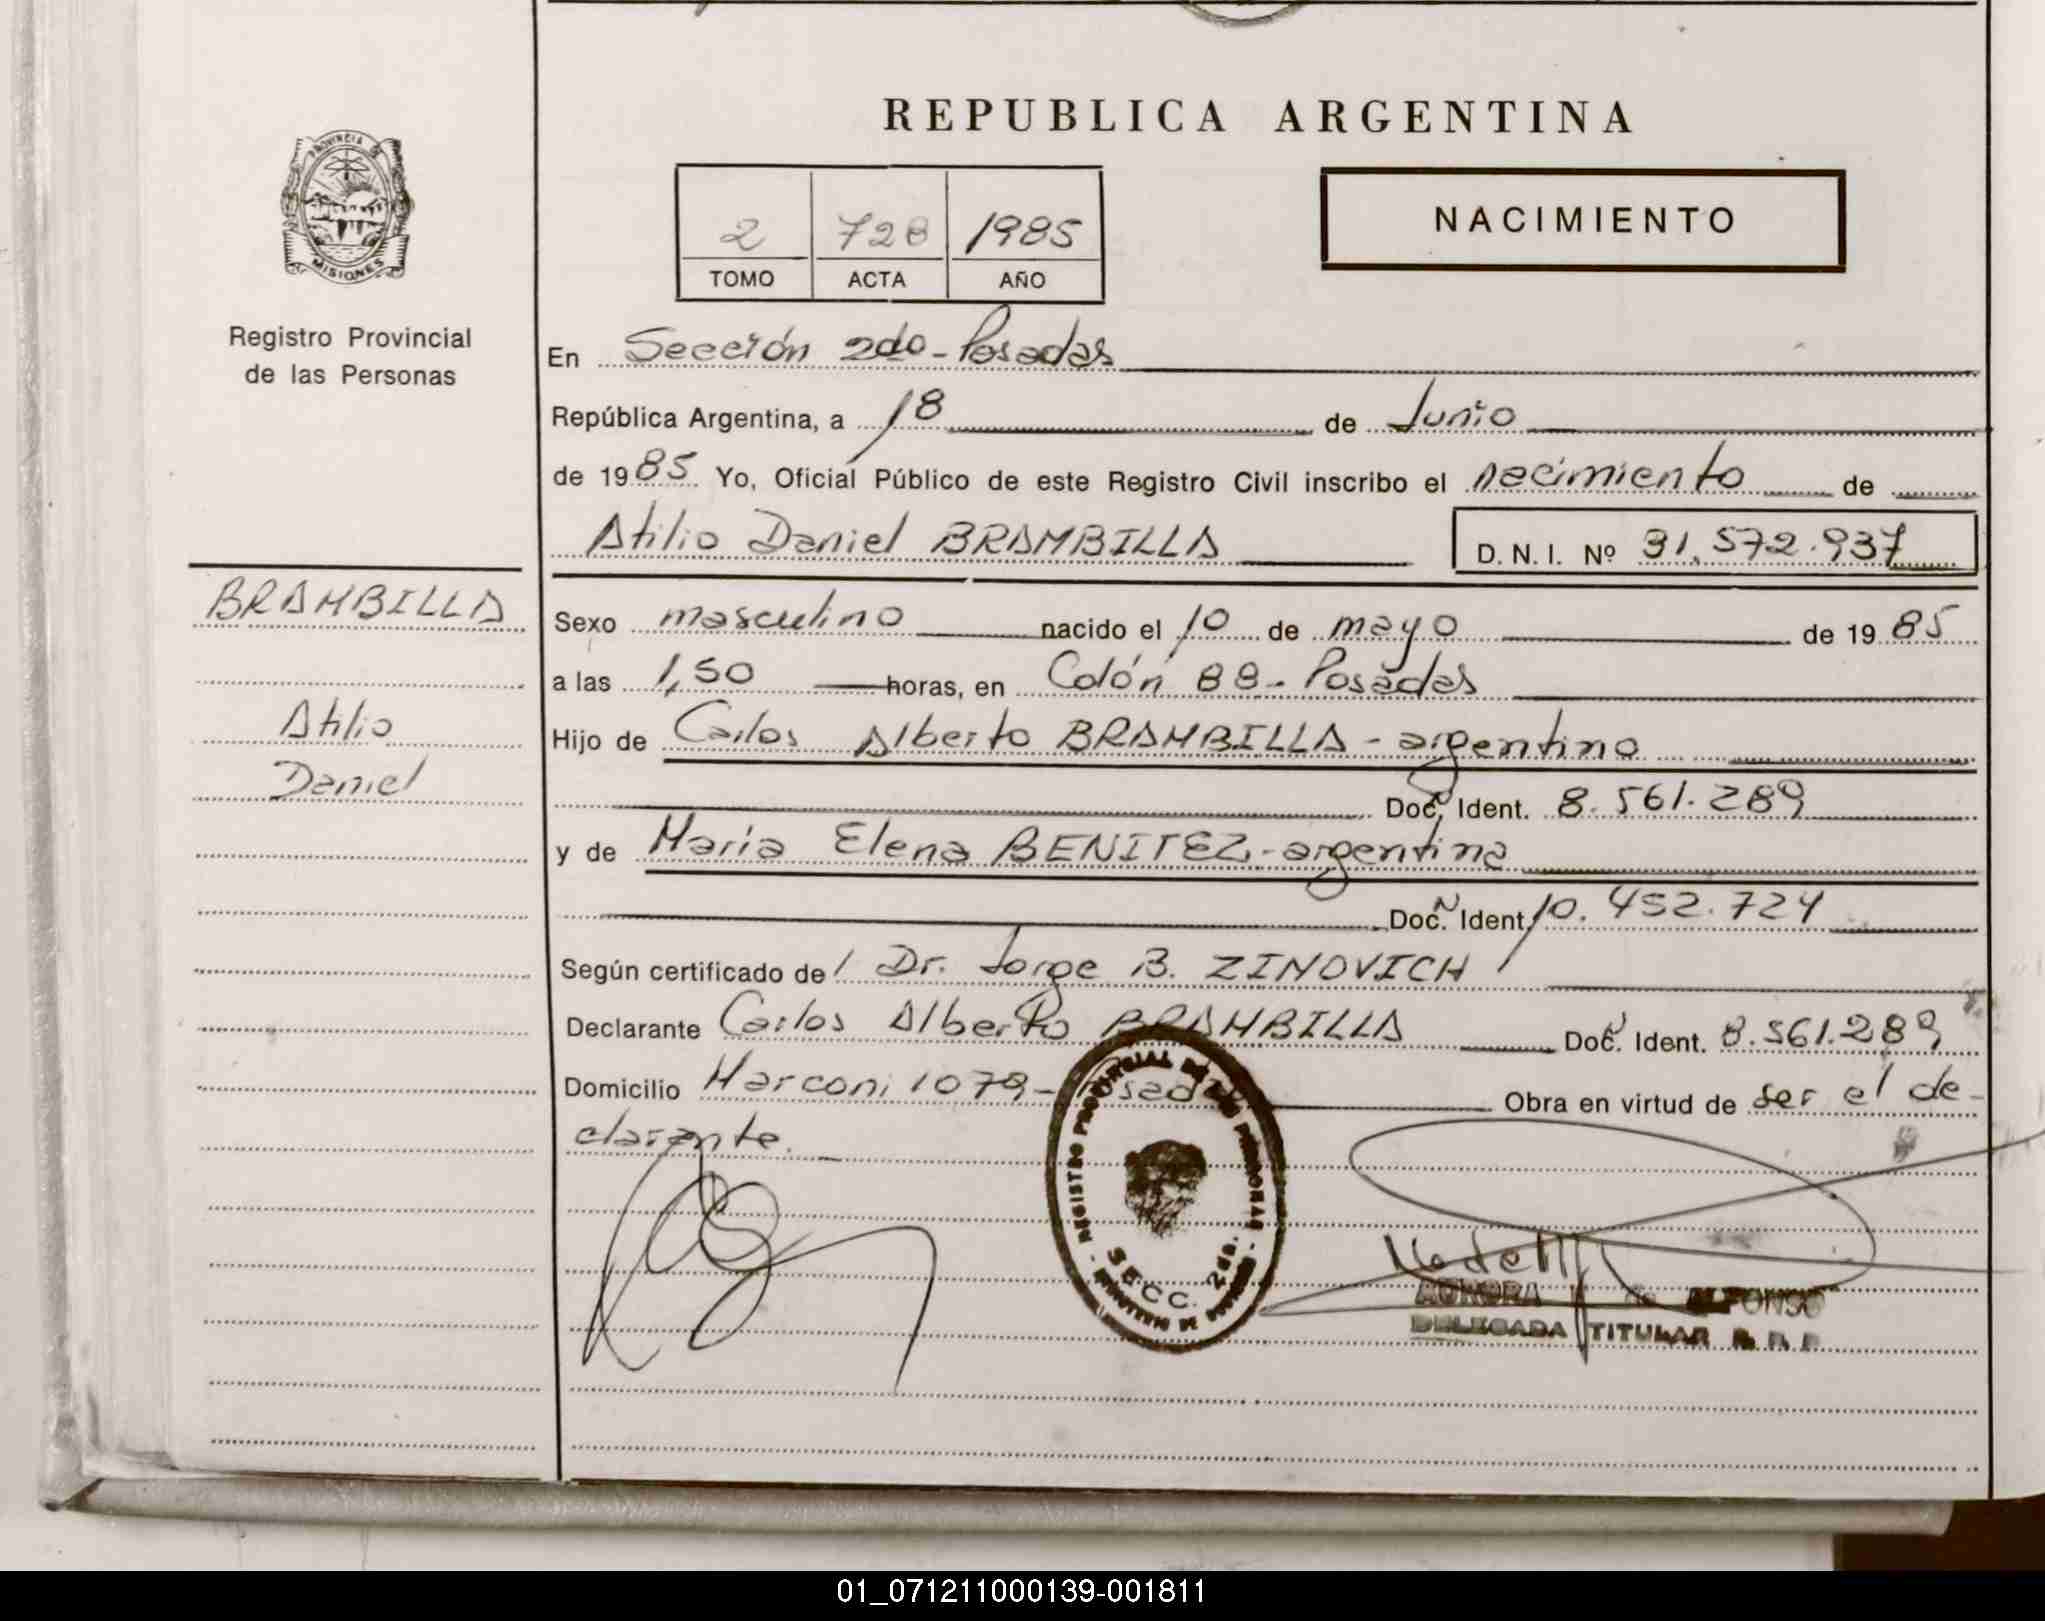 REPUBLICA ARGENTINA
PROVINCIA DE
MISIONES
Registro Provincial
de las Personas
2 728 1985
TOMO ACTA AÑO
NACIMIENTO
En Sección 2do - Posadas
República Argentina, a 18 de Junio
de 1985 Yo, Oficial Público de este Registro Civil inscribo el nacimiento de
Atilio Daniel BRAMBILLA D. N. I. Nº 31.572.937
BRAMBILLA
Atilio
Daniel
Sexo masculino nacido el 10 de mayo de 1985
a las 1,50 horas, en Colón 88 - Posadas
Hijo de Carlos Alberto BRAMBILLA - argentino
Doc. Ident. 8.561.289
y de Maria Elena BENITEZ - argentina
Doc. Ident. 10.452.724
Según certificado de/ Dr. Jorge B. ZINOVICH
Declarante Carlos Alberto BRAMBILLA Doc. Ident. 8.561.289
Domicilio Marconi 1079 - Posadas Obra en virtud de ser el de-
clarante.
REGISTRO PROVINCIAL DE LAS PERSONAS
SECC. 2da.
MINISTERIO DE GOBIERNO
AURORA de ALFONSO
DELEGADA TITULAR R. P. P.
01_071211000139-001811